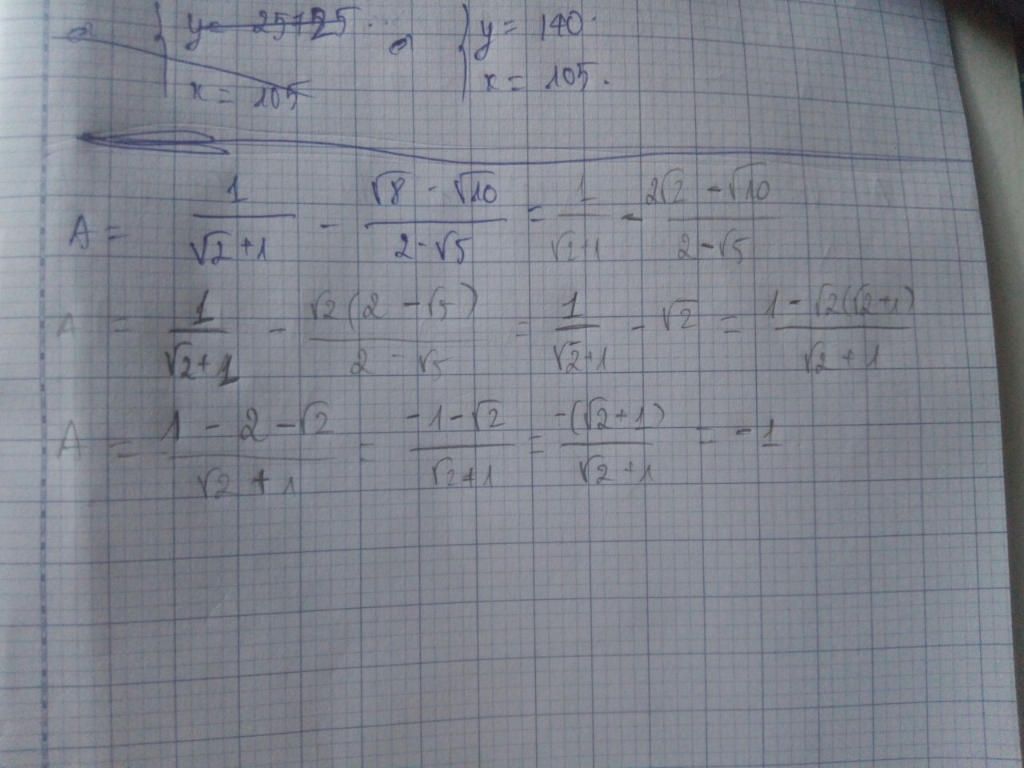 { y = 25+25.
x = 105
{ y = 140.
x = 105.
A = 1/(√2+1) - (√8 - √10)/(2-√5) = 1/(√2+1) - (2√2 - √10)/(2-√5)
A = 1/(√2+1) - √2(2-√5)/(2-√5) = 1/(√2+1) - √2 = (1-√2(√2+1))/(√2+1)
A = (1-2-√2)/(√2+1) = (-1-√2)/(√2+1) = -(√2+1)/(√2+1) = -1